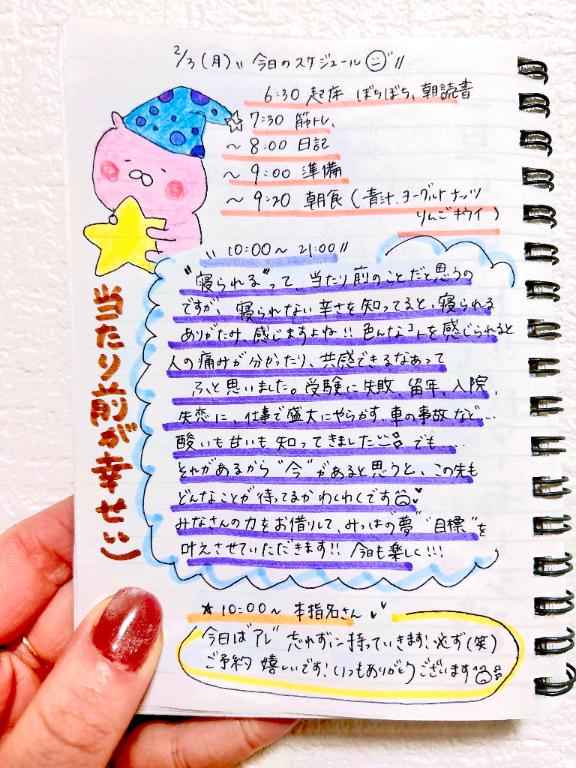 2/3(月)〃 今日のスケジュール〃
6:30 起床 ぼちぼち、朝読書
7:30 筋トレ、
〜8:00 日記
〜9:00 準備
〜9:20 朝食(青汁、ヨーグルトナッツ
りんごキウイ)
〃10:00〜21:00〃
"寝られる"って、当たり前のことだと思うの
ですが、寝られない辛さを知ってると、寝られる
ありがたみ、感じますよね!!色んなコトを感じられると
人の痛みが分かったり、共感できるなあって
ふと思いました。受験に失敗、留年、入院、
失恋に、仕事で盛大にやらかす、車の事故など…
酸いも甘いも知ってきました でも…
それがあるから"今"があると思うと、この先も
どんなことが待ってるかわくわくです
みなさんの力をお借りして、みつはの夢"目標"を
叶えさせていただきます!!今日も楽しく!!!
当たり前が幸せ:)
★10:00〜 本指名さん
今日は"アレ"忘れずに持っていきます!必ず(笑)
ご予約嬉しいです!いつもありがとうございます